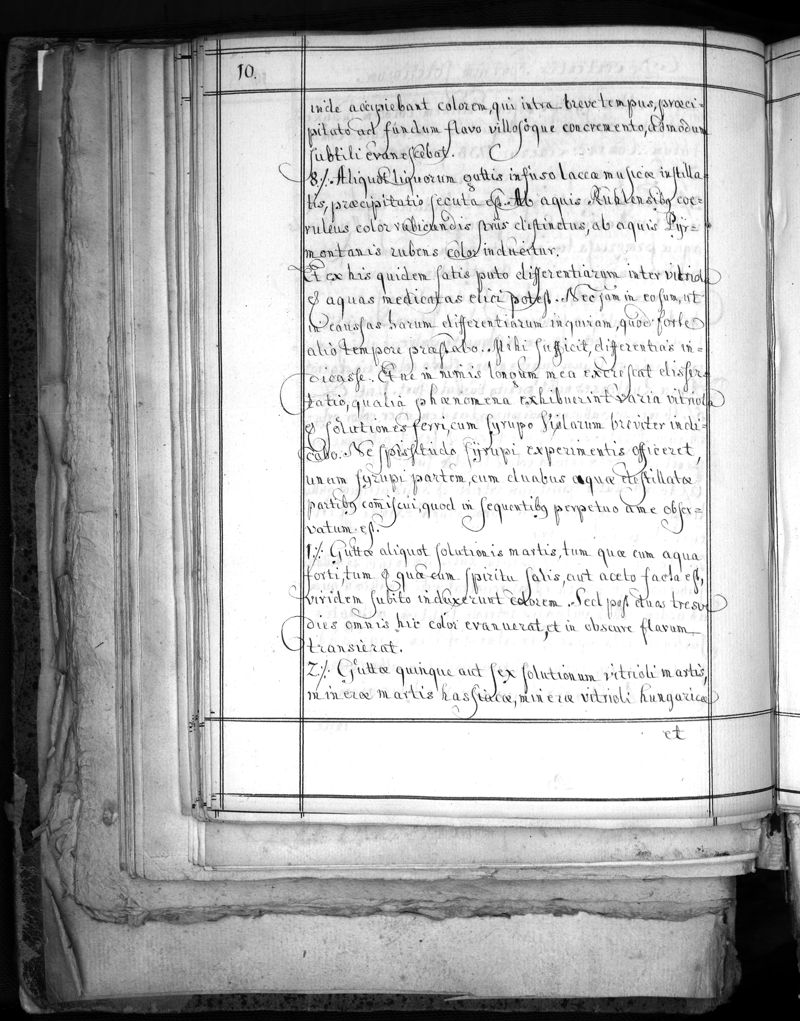 10.
inde accipiebant colorem, qui intra breve tempus, præci-
pitato ad fundum flavo villosoque concremento, admodum
subtili evanescebat.
8/. Aliquot liquorum guttis infuso laccæ musicæ instilla-
tis, præcipitatio secuta est. Ab aquis Ruhlensibq coe-
ruleus color rubicundis striis distinctus, ab aquis Pyr-
montanis rubens color induertur.
Et ex his quidem satis puto differentiarum inter vitriola
& aquas medicatas elici potest. Nec jam in eo sum, ut
in caussas harum differentiarum inquiram, quod forte
alio tempore præstabo. Mihi sufficit, differentias in-
dicasse. Et ne in nimis longum mea excrescat disser-
tatio, qualia phænomena exhibuerint varia vitriola
& solutiones ferri, cum syrupo Violarum breviter indi-
cabo. Ne spissitudo syrupi experimentis officeret,
unam syrupi partem, cum duabus aquæ destillatæ
partibq com̄iscui, quod in sequentibq perpetuo a me obser-
vatum est.
1/. Guttæ aliquot solutionis martis, tum quæ cum aqua
forti, tum & quæ cum spiritu salis, aut aceto facta est,
viridem subito induxerunt colorem. Sed post duas tresve
dies omnis hic color evanuerat, et in obscure flavum
transierat.
2/. Guttæ quinque aut sex solutionum vitrioli martis,
mineræ martis hassiacæ, mineræ vitrioli hungaricæ
et